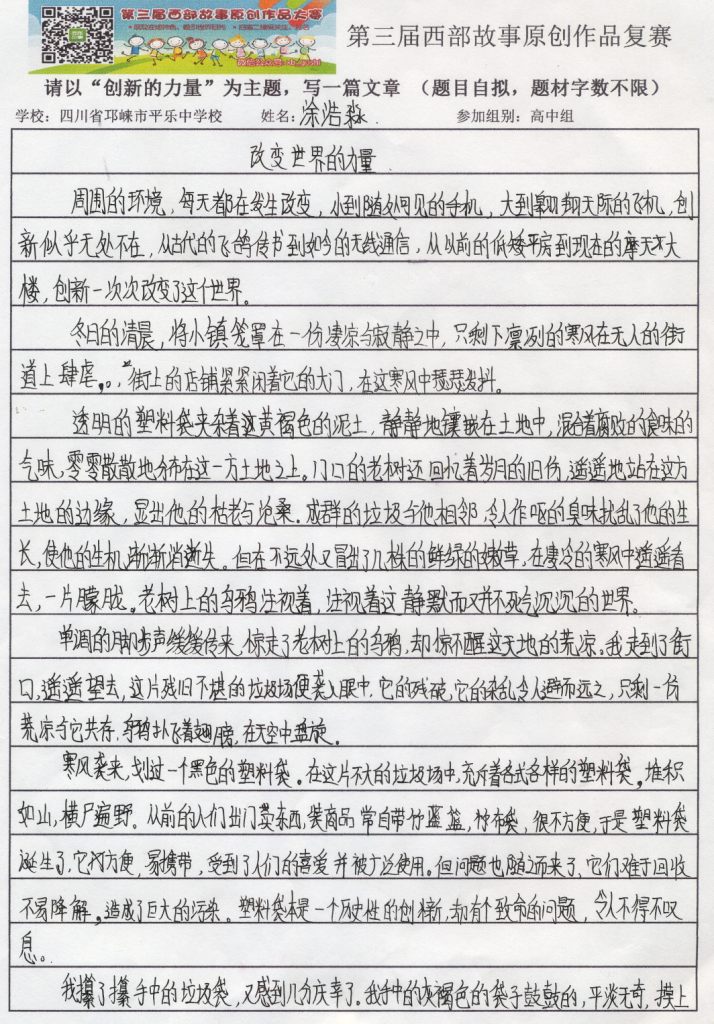 第三届西部故事原创作品大赛
第三届西部故事原创作品复赛
请以“创新的力量”为主题，写一篇文章 （题目自拟，题材字数不限）
学校：四川省邛崃市平乐中学校 姓名：涂浩淼 参加组别：高中组
改变世界的力量
周围的环境，每天都在发生改变，小到随处可见的手机，大到翱翔天际的飞机，创
新似乎无处不在，从古代的飞鸽传书到如今的无线通信，从以前的低矮平房到现在的摩天大
楼，创新一次次改变了这个世界。
冬日的清晨，将小镇笼罩在一份凄凉与寂静之中，只剩下凛冽的寒风在无人的街
道上肆虐，。街上的店铺紧紧闭着它的大门，在这寒风中瑟瑟发抖。
透明的塑料袋夹杂着这黄褐色的泥土，静静地镶嵌在土地中，混合着腐败的食味的
气味，零零散散地分布在这一方土地之上。门口的老树还回忆着岁月的旧伤，遥遥地站在这方
土地的边缘，显出他的枯老与沧桑。成群的垃圾与他相邻，令人作呕的臭味扰乱了他的生
长，使他的生机渐渐消逝失。但在不远处又冒出了几株的鲜绿的嫩草，在凄冷的寒风中遥遥看
去，一片朦胧。老树上的乌鸦注视着，注视着这静默而又并不死气沉沉的世界。
单调的脚步声缓缓传来，惊走了老树上的乌鸦，却惊不醒这天地的荒凉。我走到了街
口，遥遥望去，这片残旧不堪的垃圾场便袭入眼中，它的残破，它的杂乱令人避而远之，只剩一份
荒凉与它共存，乌鸦扑飞着翅膀，在天空中盘旋。
寒风袭来，划过一个黑色的塑料袋。在这片不大的垃圾场中，充斥着各式各样的塑料袋。堆积
如山，横尸遍野。从前的人们出门卖东西，装商品常自带竹篮，竹布袋，很不方便，于是塑料袋
诞生了，它方便，易携带，受到了人们的喜爱并被广泛使用。但问题也随之而来了，它们难于回收
不易降解，造成了巨大的污染。塑料袋本是一个历史性的创新，却有个致命的问题，令人不得不叹
息。
我攥了攥手中的垃圾袋，又感到几分庆幸了。我手中的灰褐色的袋子鼓鼓的，平淡无奇，摸上